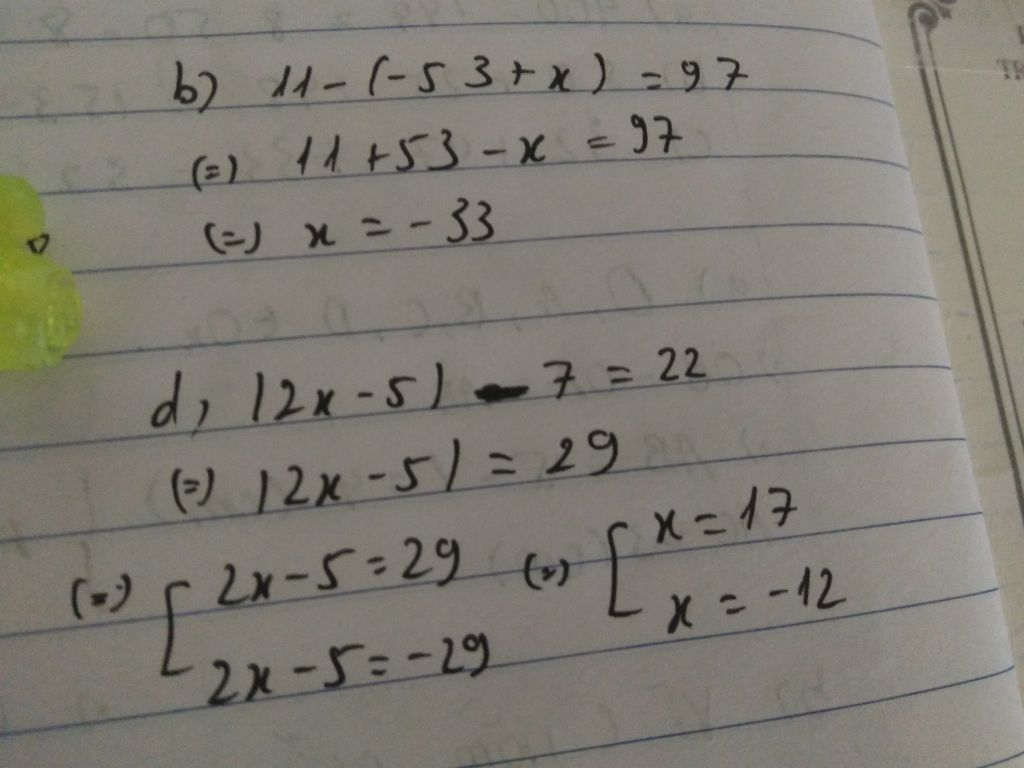 b) 11 - (-53 + x) = 97
(=) 11 + 53 - x = 97
(=) x = -33
d, |2x - 5| - 7 = 22
(=) |2x - 5| = 29
(=) [ 2x - 5 = 29 (=) [ x = 17
2x - 5 = -29 x = -12